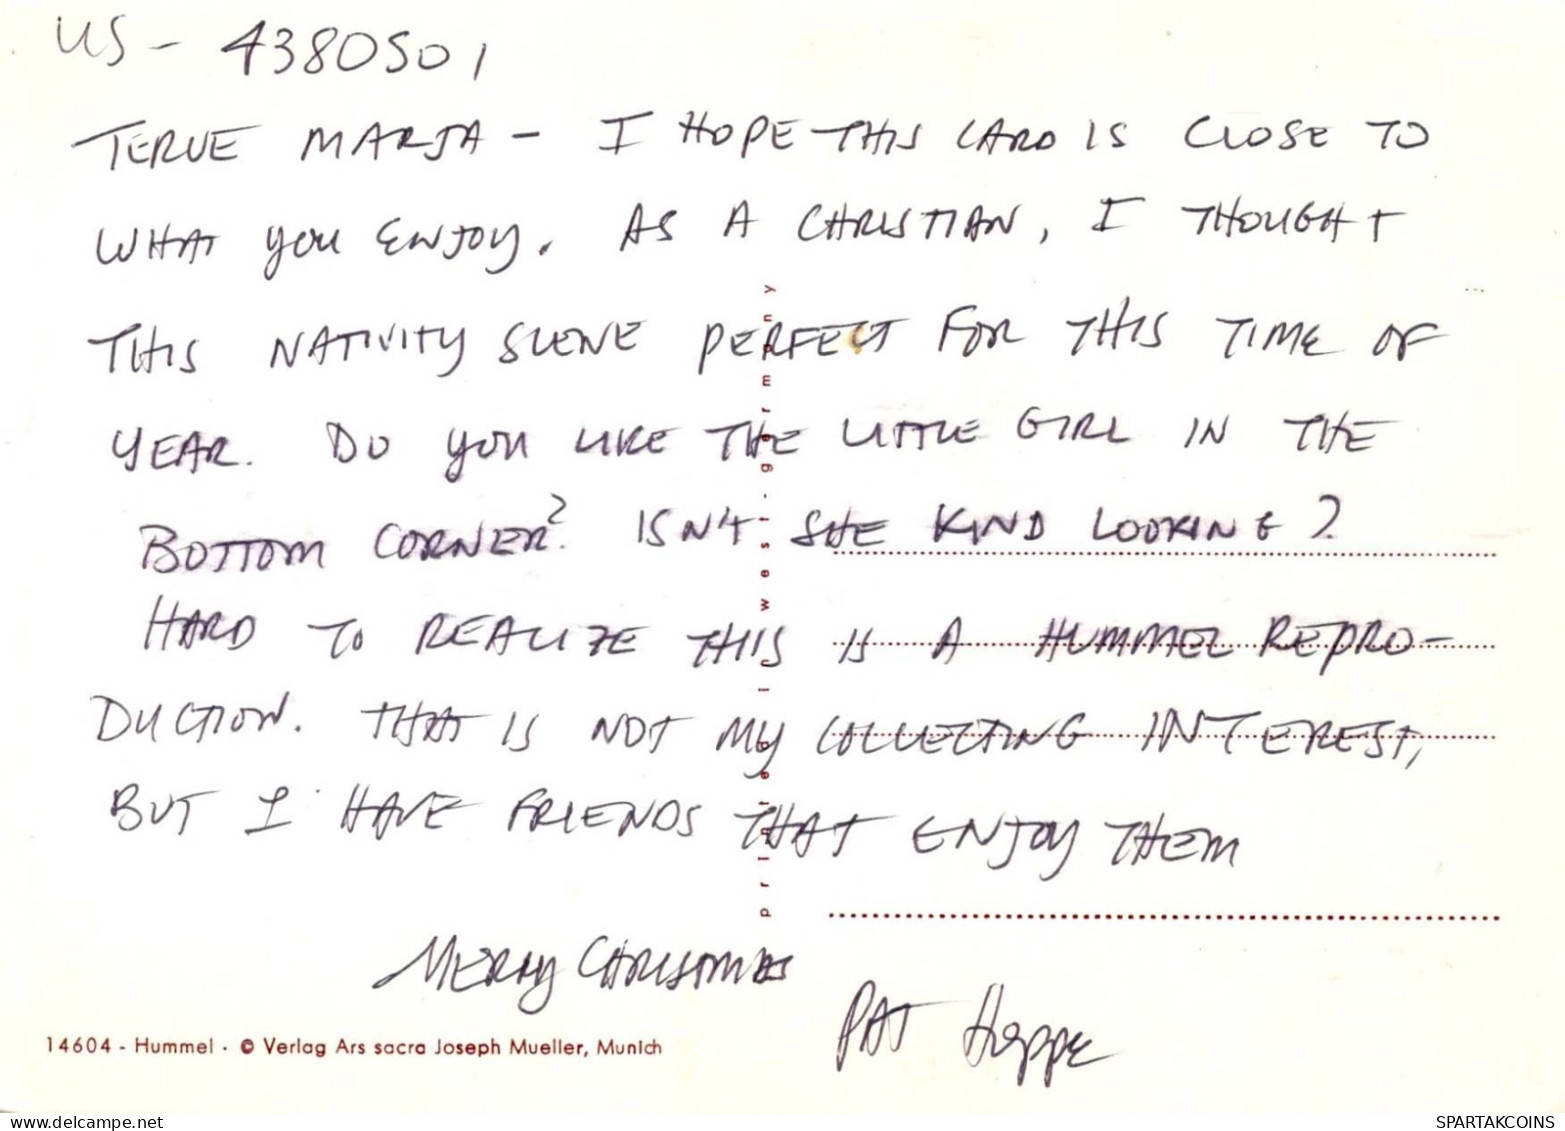 US - 4380501
TERVE MARJA - I HOPE THIS CARD IS CLOSE TO
WHAT YOU ENJOY. AS A CHRISTIAN, I THOUGHT
THIS NATIVITY SCENE PERFECT FOR THIS TIME OF
YEAR. DO YOU LIKE THE LITTLE GIRL IN THE
BOTTOM CORNER? ISN'T SHE KIND LOOKING?
HARD TO REALIZE THIS IS A HUMMEL REPRO-
DUCTION. THAT IS NOT MY COLLECTING INTEREST,
BUT I HAVE FRIENDS THAT ENJOY THEM
MERRY CHRISTMAS
PAT Hoppe
printed in west-germany
14604 - Hummel · © Verlag Ars sacra Joseph Mueller, Munich
www.delcampe.net
SPARTAKCOINS